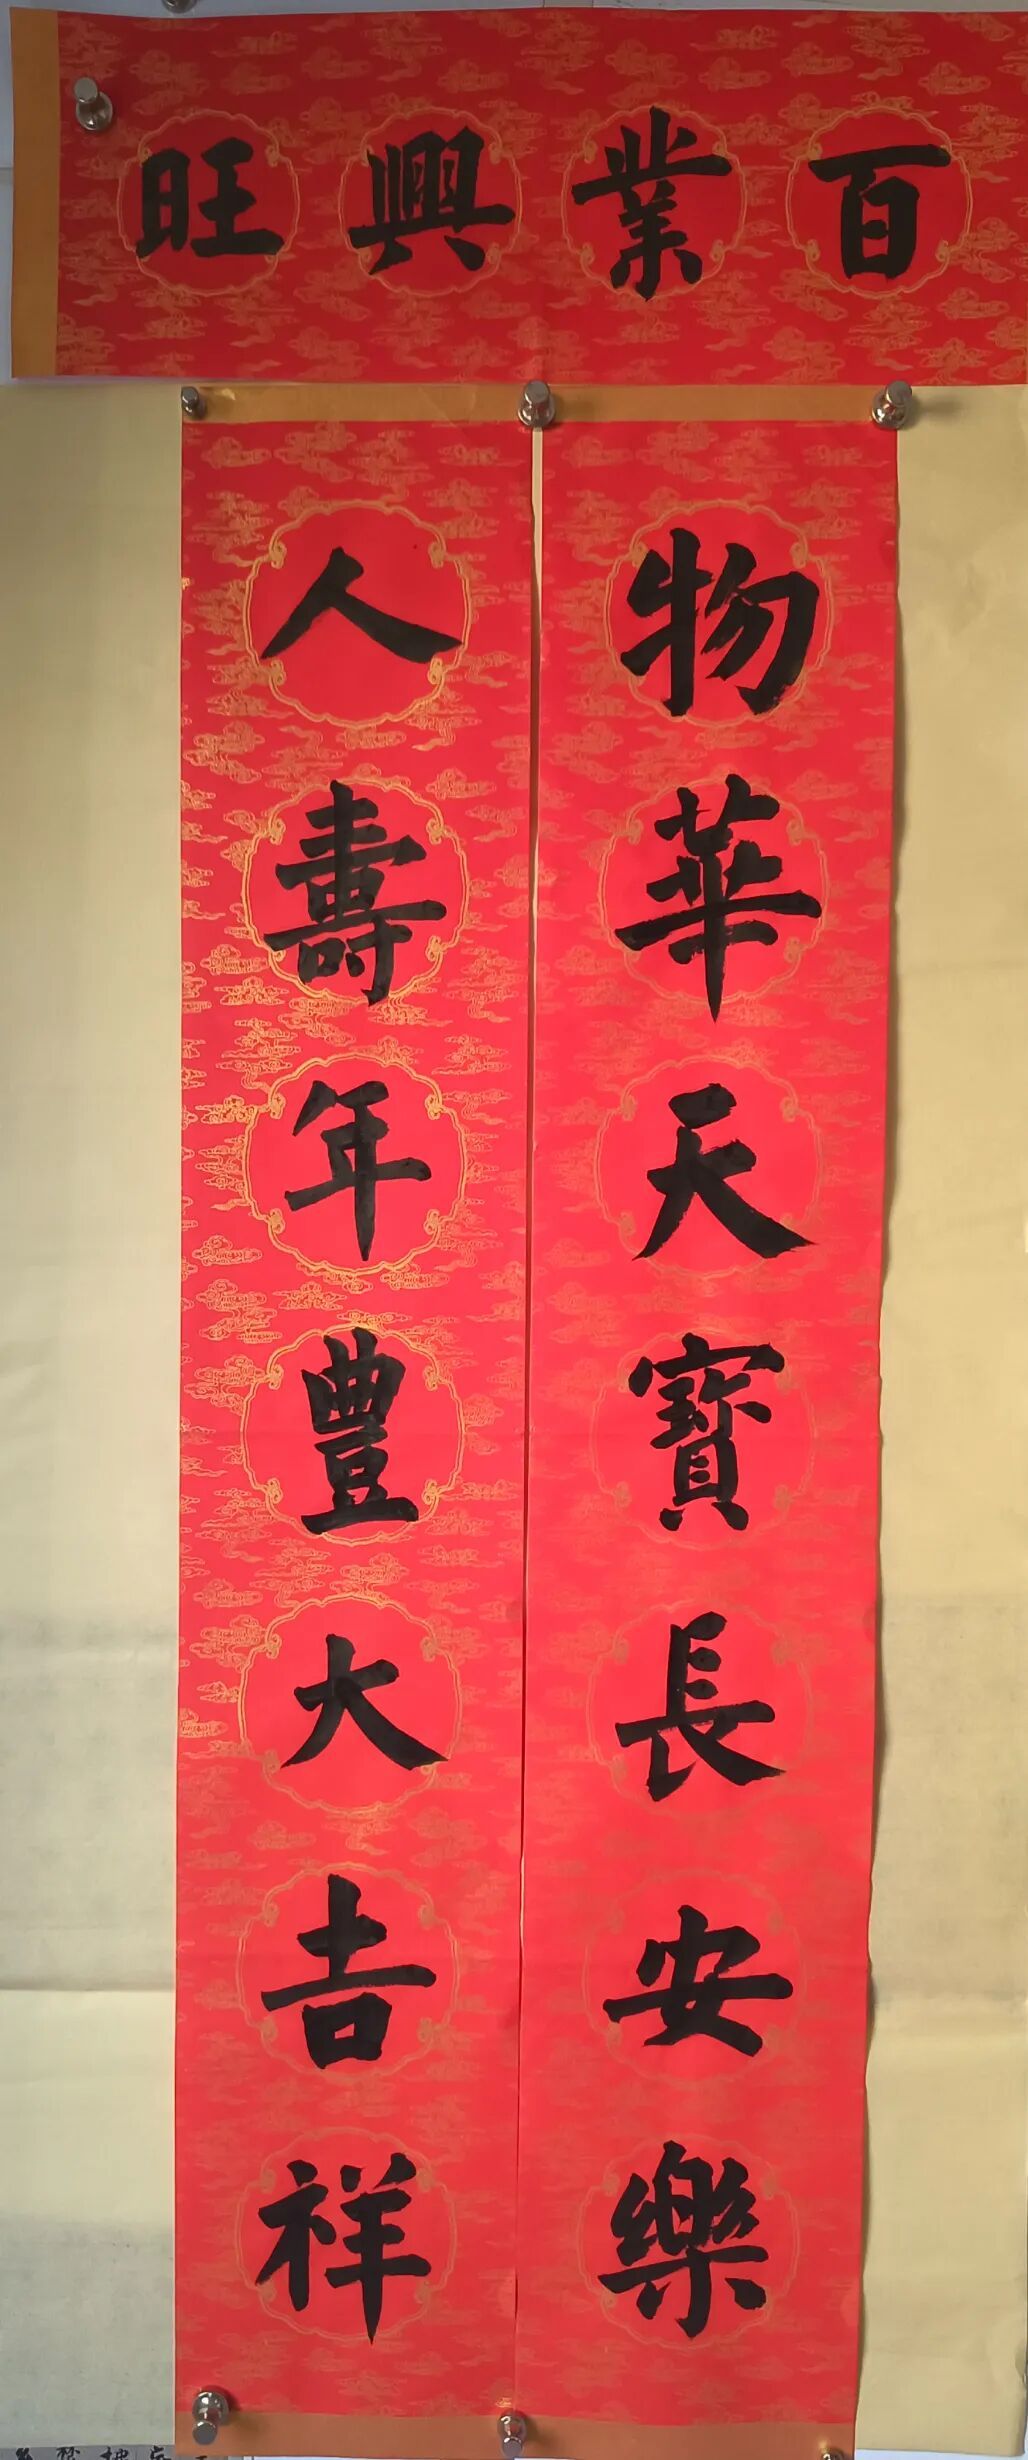 百業興旺
物華天寶長安樂
人壽年豐大吉祥